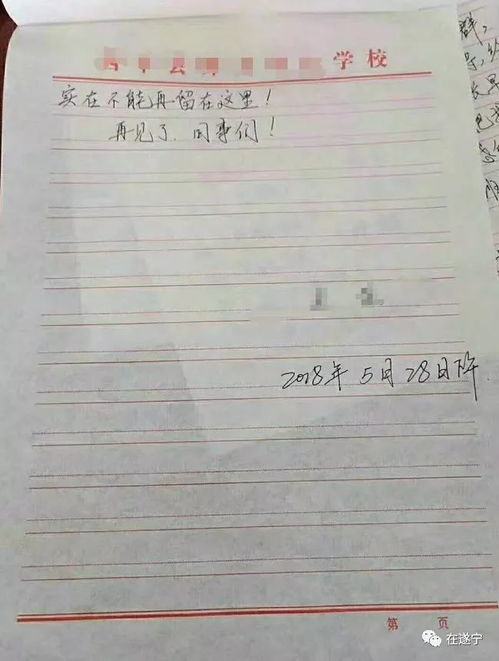 学校
实在不能再留在这里！
再见了．同事们！
2018年 5月28日下午
第 页
在遂宁